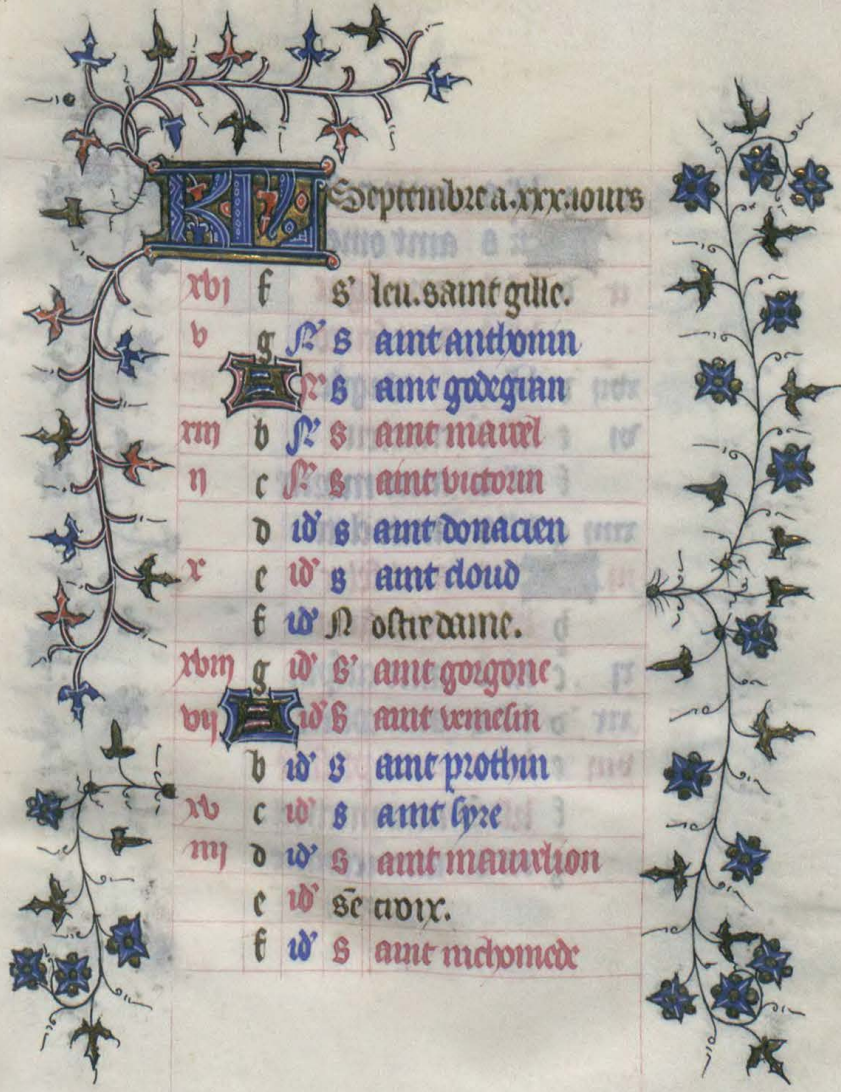 KL Septembre a .xxx. iours
xvi f s' leu. saint gille.
v g N' s aint anthonin
A N' s aint godegran
xiii b N' s aint maicel
ii c N' s aint victorin
d id' s aint donacien
x e id' s aint cloud
f id' N ostre dame.
xviii g id' s' aint gorgone
vii A id' s aint vrmelin
b id' s aint prothin
xv c id' s aint syre
iiii d id' s aint maurilion
e id' sē croix.
f id' s aint nichomede